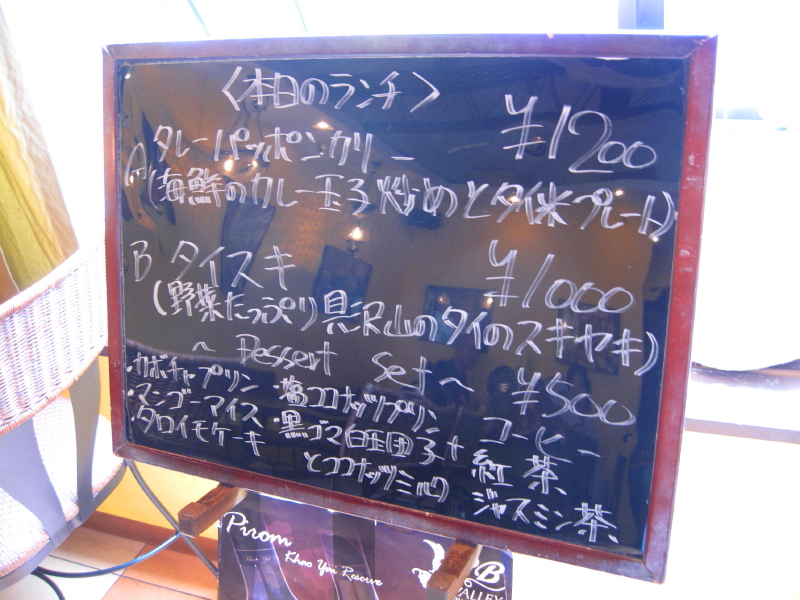 〈本日のランチ〉
A タレーパッポンカリー ¥1200
(海鮮のカレー玉子炒めとタイ米プレート)
B タイスキ ¥1000
(野菜たっぷり具沢山のタイのスキヤキ)
～Dessert Set～ ¥500
・カボチャプリン ・塩ココナッツプリン コーヒー
・マンゴーアイス ・黒ゴマ白玉団子 + 紅茶
・タロイモケーキ とココナッツミルク ジャスミン茶
Pirom
Khao Yai Reserve
B
VALLEY